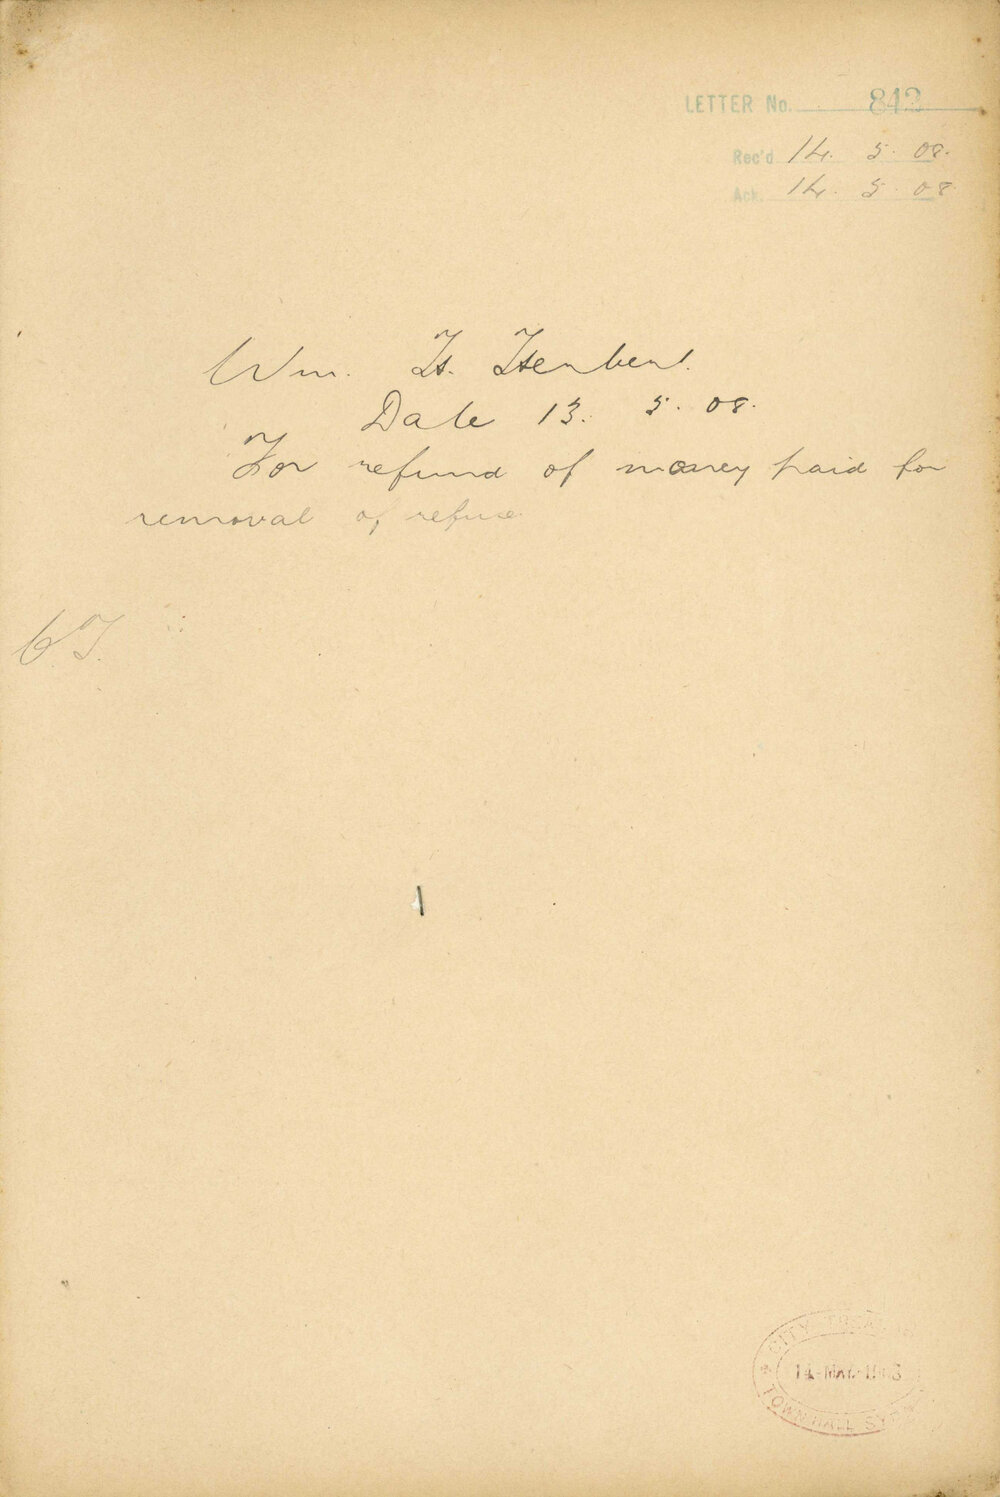 LETTER No. 842
Rec'd 14. 5. 08.
Ack. 14. 5. 08
Wm. H. Herbert.
Date 13. 5. 08.
For refund of money paid for
removal of refuse
CT.
CITY
14 MAY 1908
TOWN HALL SYDNEY